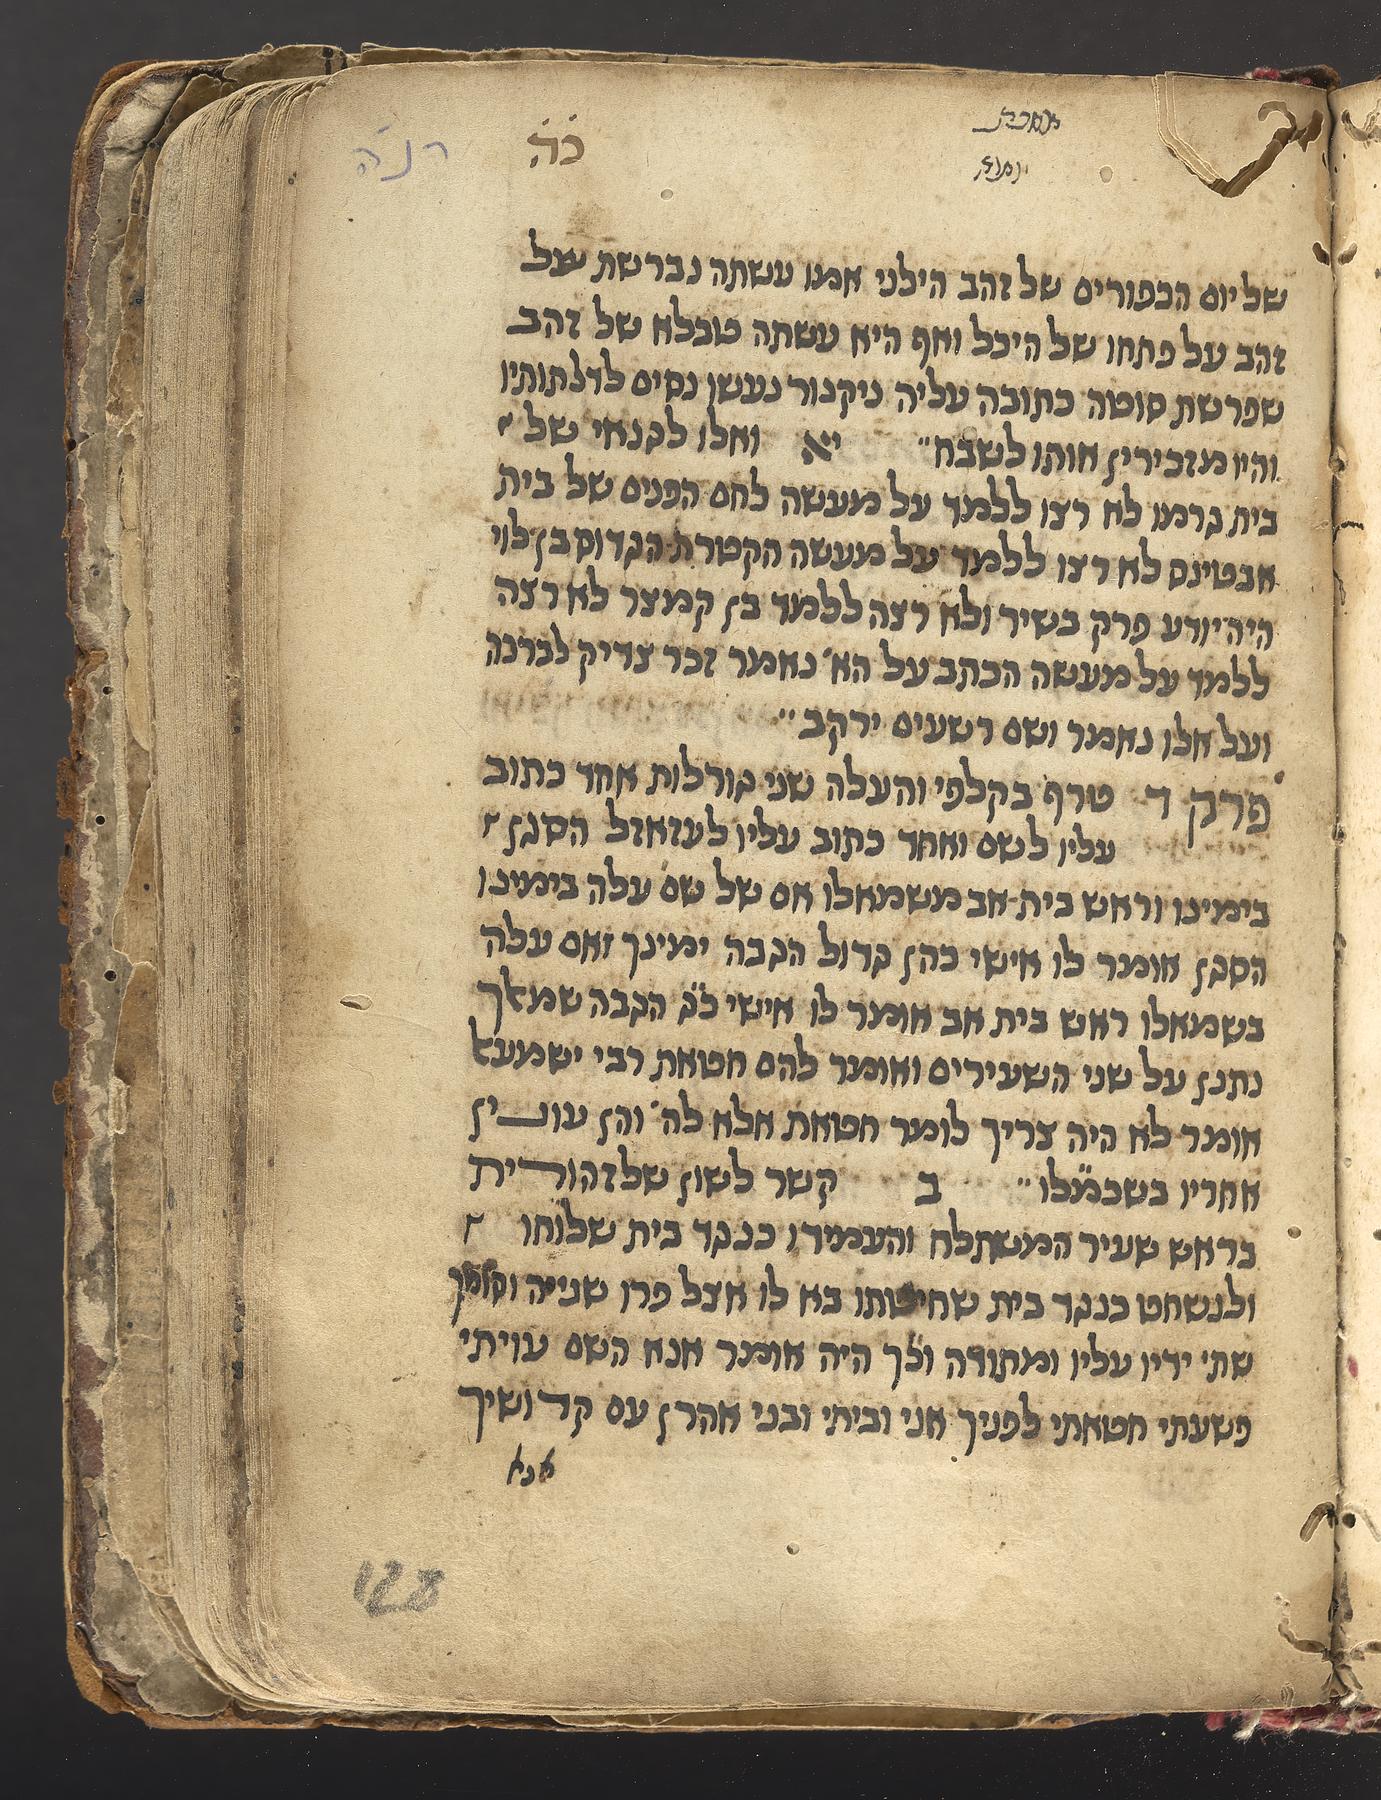 מסכת
יומא
כ̇ה̇
רנ̇ה̇
של יום הכפורים של זהב הילני אמו עשתה נברשת של
זהב על פתחו של היכל ואף היא עשתה טבלא של זהב
שפרשת סוטה כתובה עליה ניקנור נעשו נסים לדלתותיו
והיו מזכירין אותו לשבח״ יא ואלו לגנאי של
בית גרמו לא רצו ללמד על מעשה לחם הפנים של בית
אבטינס לא רצו ללמד על מעשה הקטרת הגדוס בן לוי
היה יודע פרק בשיר ולא רצה ללמד בן קמצר לא רצה
ללמד על מעשה הכתב על הא׳ נאמר זכר צדיק לברכה
ועל אלו נאמר ושם רשעים ירקב״
פרק ד טרף בקלפי והעלה שני גורלות אחד כתוב
עליו לשם ואחד כתוב עליו לעזאזל הסגן
בימינו וראש בית אב משמאלו אם של שם עלה בימינו
הסגן אומר לו אישי כהן גדול הגבה ימינך ואם עלה
בשמאלו ראש בית אב אומר לו אישי כ״ג הגבה שמאלך
נתנן על שני השעירים ואומר להם חטאת רבי ישמעאל
אומר לא היה צריך לומר חטאת אלא לה׳ והן עונין
אחריו בשכמ״לו״ ב קשר לשון של זהורית
בראש שעיר המשתלח והעמידו כנגד בית שלוחו
ולנשחט כנגד בית שחיטתו בא לו אצל פרו שנייה וסומך
שתי ידיו עליו ומתודה וכ״ך היה אומר אנא השם עויתי
פשעתי חטאתי לפניך אני וביתי ובני אהרן עם קדושיך
אנא
128